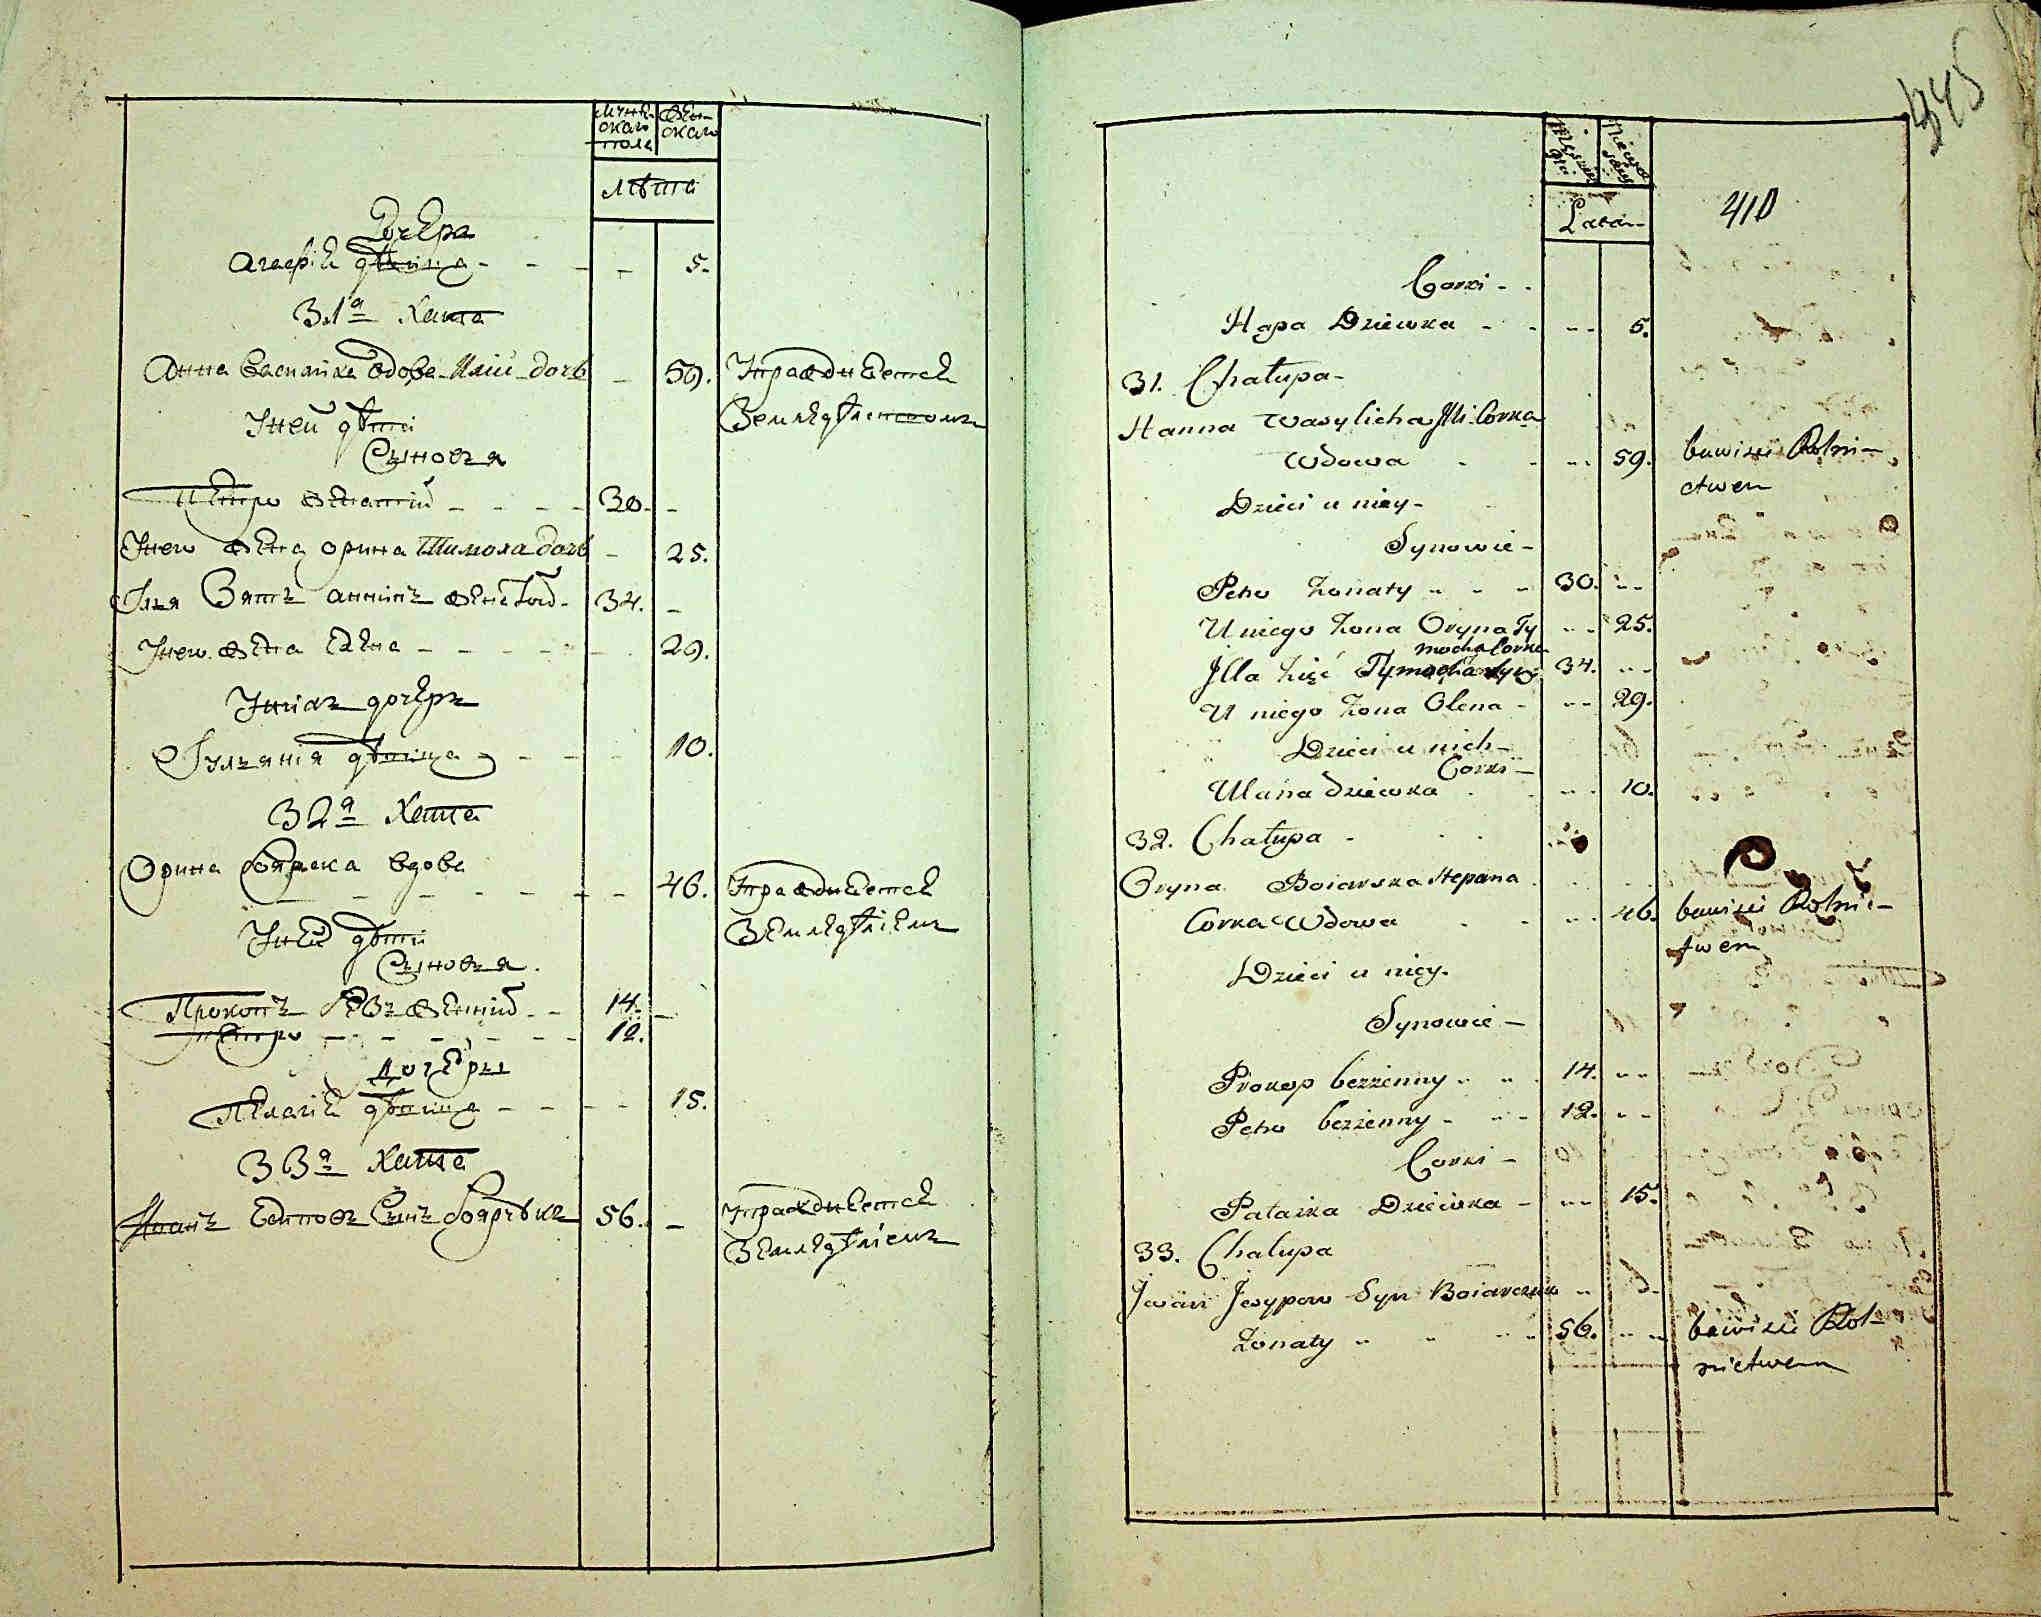 мужеска
го
пола
жен
скаго
лѣта
Дочера
Агафія дѣвица - - - - 5.
31я Хата
Анна Василиха вдова Илїи дочь - 59. Упражняется
Земледѣліемъ
У неи дѣти
Сыновья
Петро женатый - - - - 30. -
У него жена Орина Тимоха дочь - 25.
Илья Зять Аннинъ женатый - 34. -
У него жена Елена - - - - 29.
У нихъ дочерь
Юлианія дѣвица - - - 10.
32я Хата
Орина Боярска вдова
- - - - - - 46. Упражняется
Земледѣліемъ
У ней дѣти
Сыновья.
Прокопъ безженный - - 14. -
Петро - - - - - - 12.
Дочеры
Пелагія дѣвица - - - - 15.
33я Хата
Иванъ Есиповъ Сынъ Боярчукъ 56. - Упражняется
Земледѣліемъ
445
410
Lata
Corki - -
Hapa Dziewka - - - - 5.
31. Chałupa -
Hanna Wasylicha Ili Corka
Wdowa - - - - 59. bawi się Rolni-
ctwem
Dzieci u niey -
Synowie -
Petro Żonaty - - - 30. - -
U niego Żona Oryna Ty - - 25.
mocha Corka
Illa Zięć 34. - -
U niego Żona Olena - - - 29.
Dzieci u nich -
Corki -
Ulana dziewka - - - 10.
32. Chałupa -
Oryna Boiarska Stepana
Corka Wdowa - - - - 46. bawi się Rolnic-
twem
Dzieci u niey.
Synowie -
Prokop bezżenny - - - 14. - -
Petro bezżenny - - - 12. - -
Corki -
Palaika Dziewka - - - 15.
33. Chałupa
Jwan Jesypow Syn Boiarczuk - -
Żonaty - - - - 56. - - bawi się Rol-
nictwem